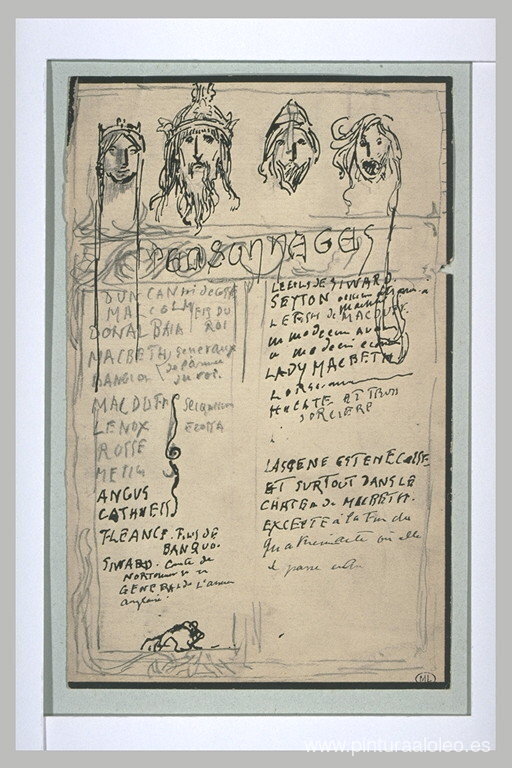 PERSONNAGES
DUNCAN roi de
MALCOLM FILS DU
DONALBAIN ROI
MACBETH Generaux
BANQUO de l'armee
du roi.
MACDUFF Seigneurs
LENOX ECOSSE
ROSSE
ANGUS
CATHNESS
FLEANCE. FILS DE
BANQUO.
SIWARD. Comte de
GENERAL de L'armee
anglaise.
LE FILS DE SIWARD.
SEYTON
LE FILS de MACDUFF.
un medecin
un medecin
LADY MACBETH
HECATE ET TROIS
SORCIERE
LA SCENE EST EN ECOSSE
ET SURTOUT DANS LE
CHATEAU DE MACBETH.
EXCEPTE à la Fin du
elle
passe
ML
www.pinturaaloleo.es